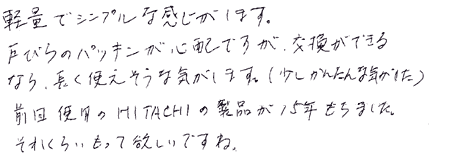 軽量でシンプルな感じがします。
戸びらのパッキンが心配ですが、交換ができる
なら、長く使えそうな気がします。(少しかんたんな気がした)
前回使用のHITACHIの製品が15年もちました。
それくらいもって欲しいですね。